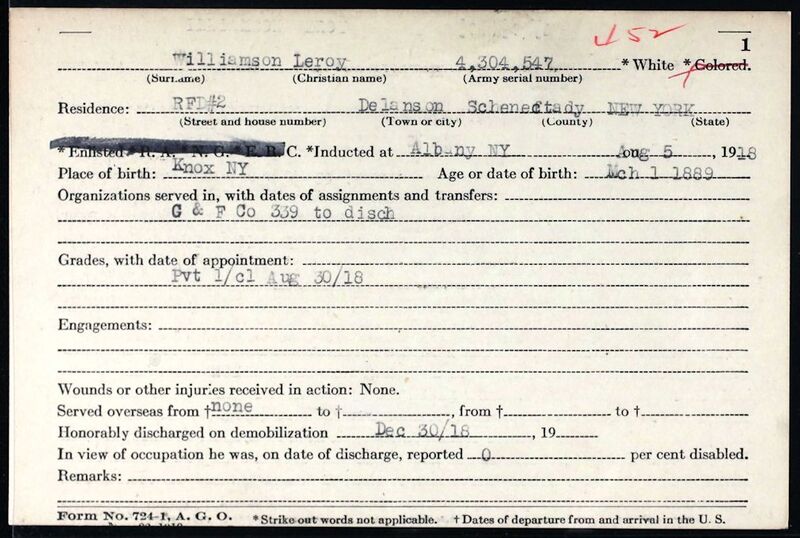 452
1
Williamson Leroy 4,304,547 * White * Colored.
(Surname) (Christian name) (Army serial number)
Residence: RFD#2 Delanson Schenectady NEW YORK
(Street and house number) (Town or city) (County) (State)
* Enlisted * R. A. * N. G. * E. R. C. *Inducted at Albany NY on Aug 5, 1918
Place of birth: Knox NY Age or date of birth: Mch 1 1889
Organizations served in, with dates of assignments and transfers:
G & F Co 339 to disch
Grades, with date of appointment:
Pvt 1/cl Aug 30/18
Engagements:
Wounds or other injuries received in action: None.
Served overseas from †none to †, from † to †
Honorably discharged on demobilization Dec 30/18, 19
In view of occupation he was, on date of discharge, reported 0 per cent disabled.
Remarks:
Form No. 724-1, A. G. O. *Strike out words not applicable. †Dates of departure from and arrival in the U. S.